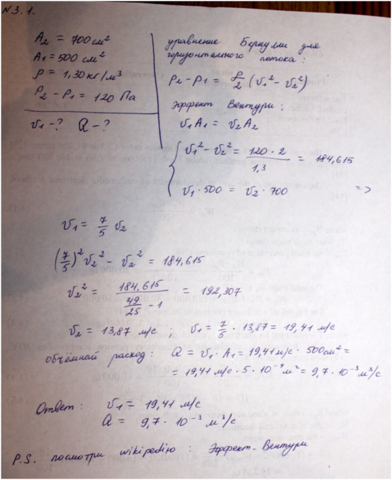 №3.1.
A₂ = 700 см²
A₁ = 500 см²
ρ = 1,30 кг/м³
P₂ - P₁ = 120 Па
v₁ - ? Q - ?
уравнение Бернулли для
горизонтального потока:
P₂ - P₁ = ρ/2 (v₁² - v₂²)
Эффект Вентури:
v₁A₁ = v₂A₂
{ v₁² - v₂² = 120 · 2 / 1,3 = 184,615
v₁ · 500 = v₂ · 700 =>
v₁ = 7/5 v₂
(7/5)² v₂² - v₂² = 184,615
v₂² = 184,615 / (49/25 - 1) = 192,307
v₂ = 13,87 м/с ; v₁ = 7/5 · 13,87 = 19,41 м/с
объёмный расход: Q = v₁ · A₁ = 19,41 м/с · 500 см² =
= 19,41 м/с · 5 · 10⁻⁴ м² = 9,7 · 10⁻³ м³/с
Ответ: v₁ = 19,41 м/с
Q = 9,7 · 10⁻³ м³/с
P.S. посмотри wikipediю: Эффект Вентури